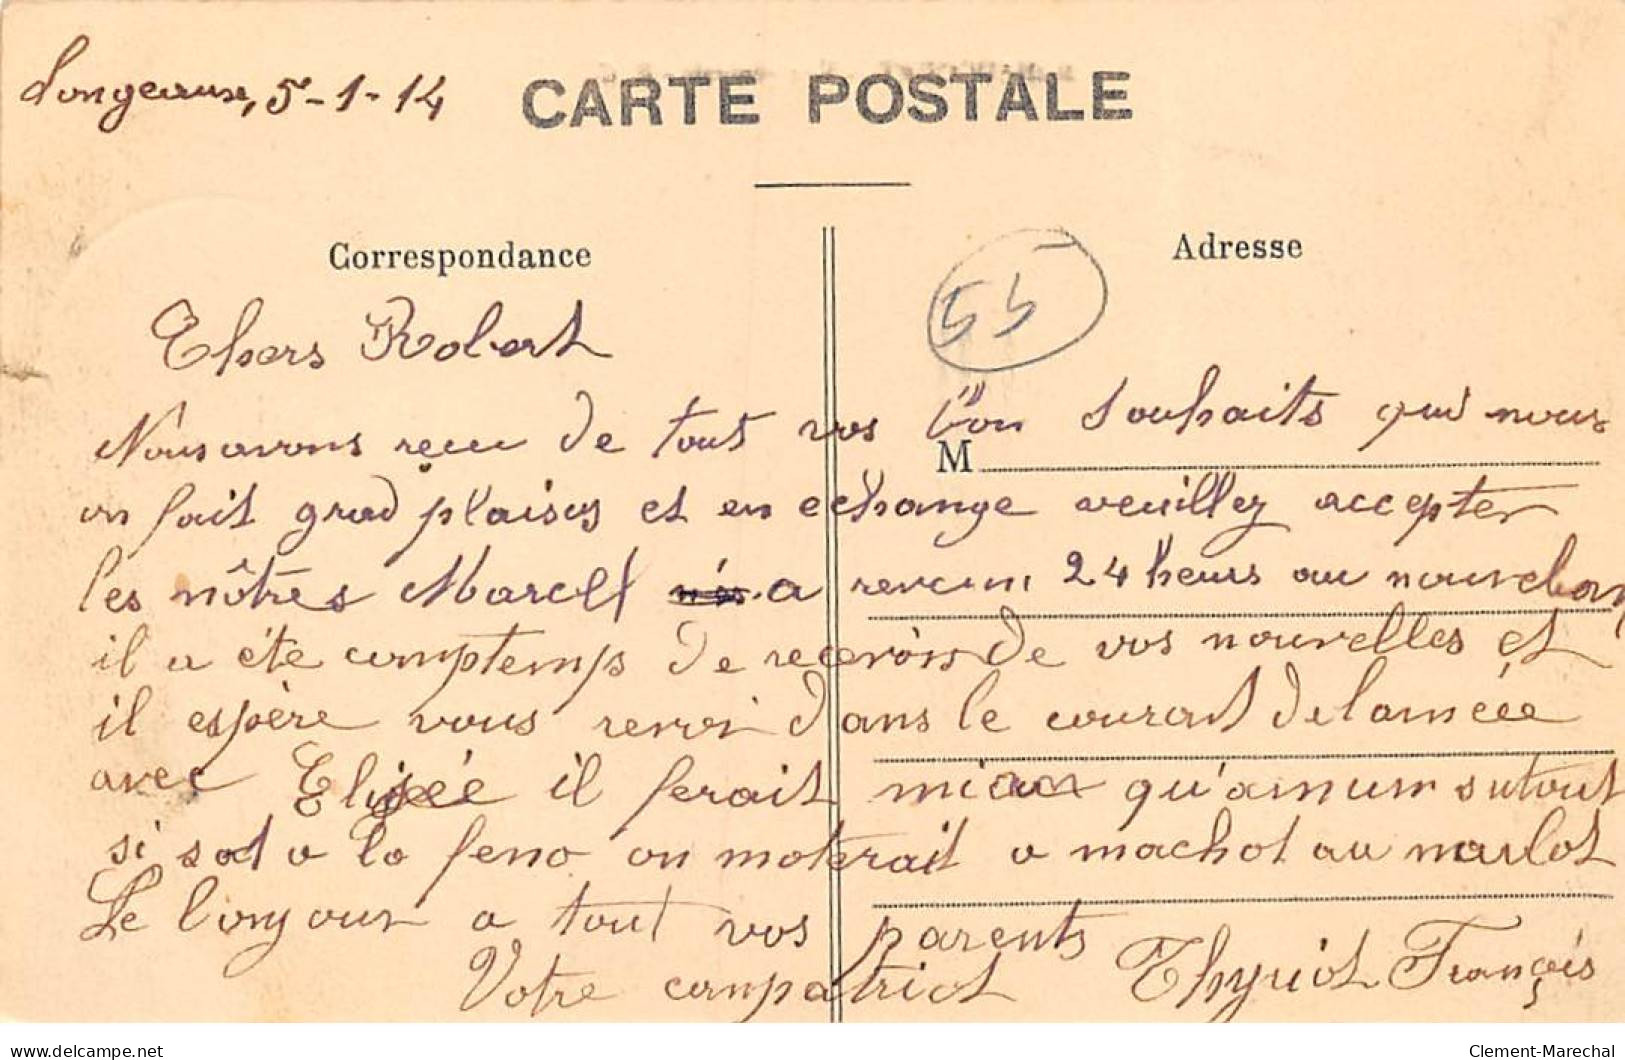 Longeaux, 5-1-14
CARTE POSTALE
Correspondance
Adresse
55
Chers Robert
Nous avons recu de tout vos bon souhaits qui nous
M
on fait grad plaisir et en echange veuillez accepter
les nôtres Marcel a revenu 24 heurs au nouvel an
il a été comptemps de recevoir de vos nouvelles et
il espère vous revoir dans le courant de l'année
avec Elisée il ferait mieux qu'amum surtout
si sa on moterait a machot au maulot
Le bonjour a tout vos parents
Votre compatriot Thyriot François
delcampe.net
Clement-Marechal